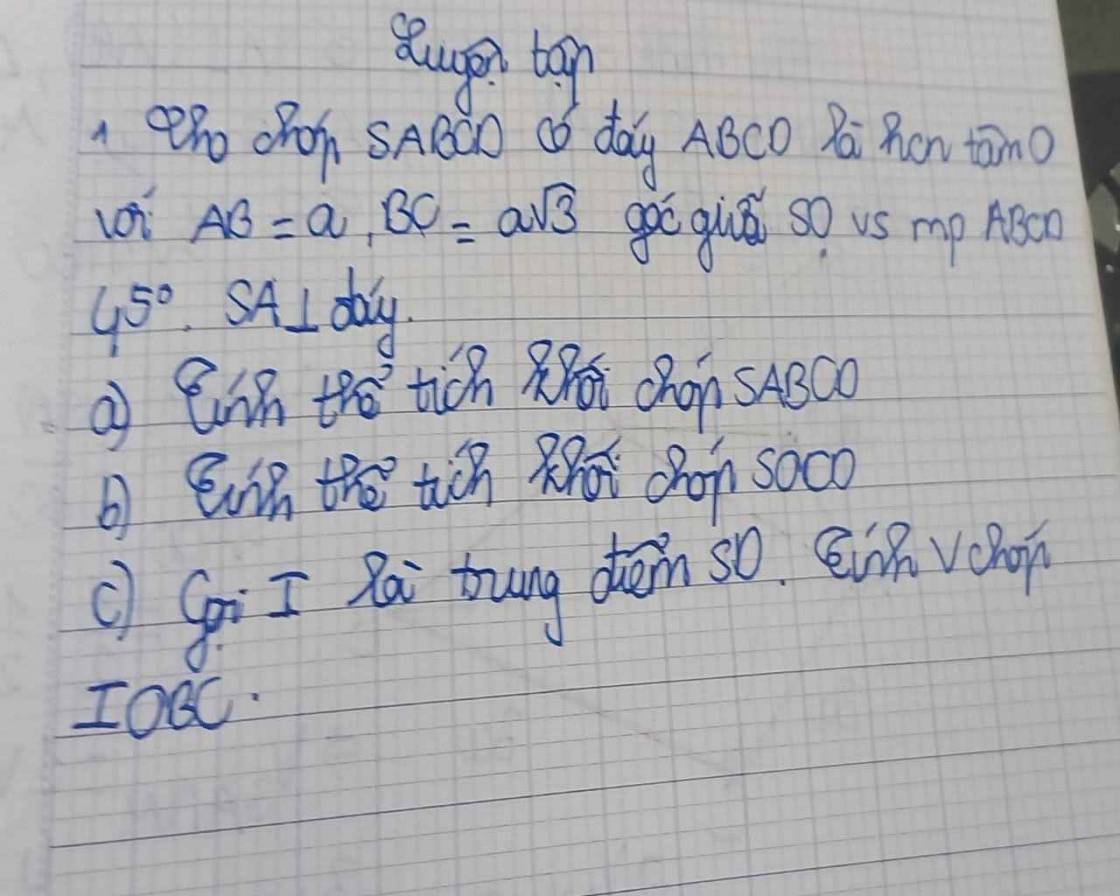 Luyện tập
1 Cho chóp SABCD có đáy ABCD là hcn tâm O
với AB = a, BC = a√3 góc giữa SO vs mp ABCD
45°. SA⊥đáy.
a) Tính thể tích khối chóp SABCD
b) Tính thể tích khối chóp SOCD
c) Gọi I là trung điểm SD. Tính V chóp
IOBC.